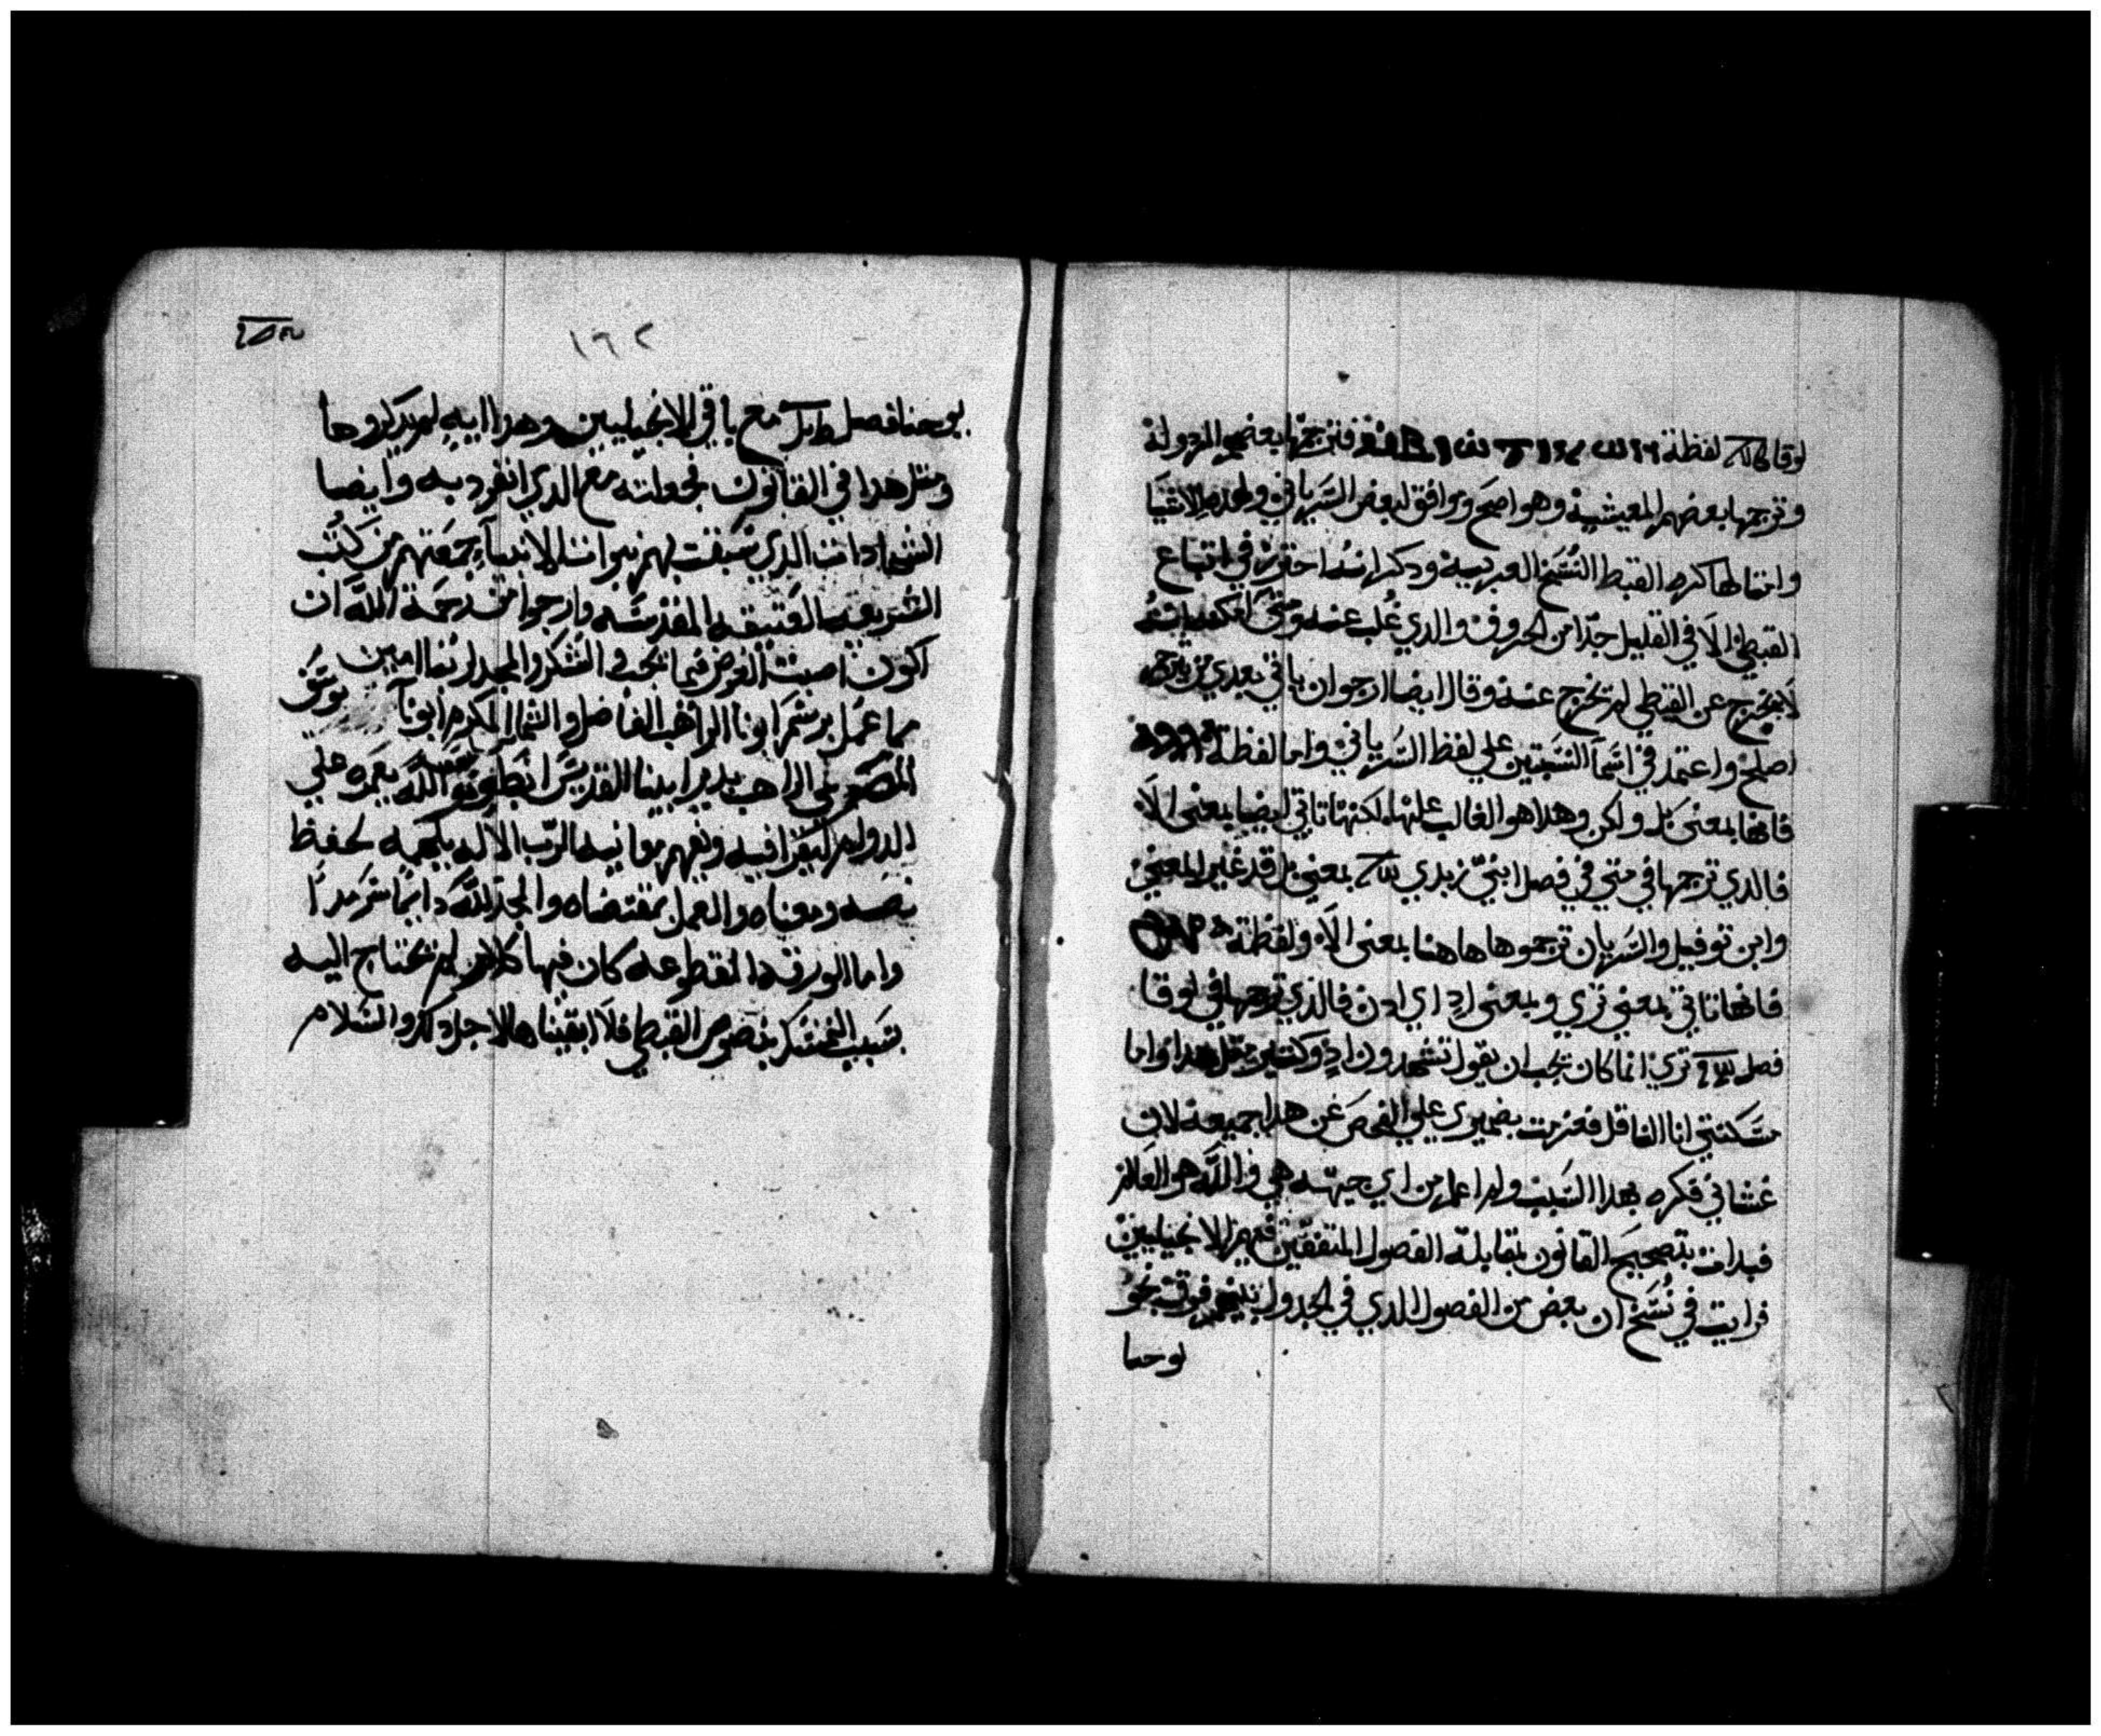 لوقا لفظة فترجمها بعضهم المزدولة
وترجمها بعضهم المعيشية وهو اصح ويوافق لبعض السرياني ولهذه الاشيا
وامثالها كره القبط النسخ العربية ودكر انه احترز في اتباع
القبطي الا في القليل جدا من الحروف والدي غلب عنه ومتي امكنه انه
لا يخرج عن القبطي لم يخرج عنه وقال ايضا ارجوا ان ياتي بعدي من يترجم
اصلح واعتمد في اسما النسختين علي لفظ السرياني واما لفظة
فانها بمعني بل ولكن وهدا هو الغالب عليها لكنها تاتي ايضا بمعني الا
فالدي ترجمها في متي في فصل ابني زبدي بمعني بل قد غير المعني
وابن توفيل والسريان ترجموها هاهنا بمعني الا ولفظة
فانها تاتي بمعني تري وبمعني اد اي ادن فالدي ترجمها في لوقا
فصل تري انما كان يجب ان يقول تشهدون اد وكتير متل هدا واما
مسكنتي انا الغافل فعزمت بضميري علي الفحص عن هدا جميعه لان
غشاني فكره بهدا السبب ولم اعلم من اي جهه هي والله هو العالم
فبدات بتصحيح القانون بمقابلة الفصول المتفقين فهم الانجيليين
فرايت في نسخ ان بعض من الفصول الدي في الجدول نحو
يوحنا
١٦٢
يوحنا فصل مع باقي الانجيليين وهدا ايه لم يدكروها
ومتل هدا في القانون فجعلته مع الدي انفرد به وايضا
الشهادات الدي سبقت بهم نبوات الانبيآ جمعتهم من كتب
الشريعه العتيقه المقدسه وارجوا من رحمة الله ان
اكون اصبت الغرض فيما بحت والشكر والمجد لربنا امين
مما عمل برسم ابونا الراهب الفاضل والشماس المكرم ابونا يوسف
الراهب بدير ابينا القديس انطونيوس الله يعمره علي
الدوام ليقرا فيه ويفهم معانيه الرب الاله يلهمه لحفظ
نصه ومعناه والعمل بمقتضاه والمجد لله دايما سرمدا
واما الورقه المقطوعه كان فيها كلام لم نحتاج اليه
بسبب التمسك بنصوص القبطي فلا ابقيناها لاجل دلك والسلام